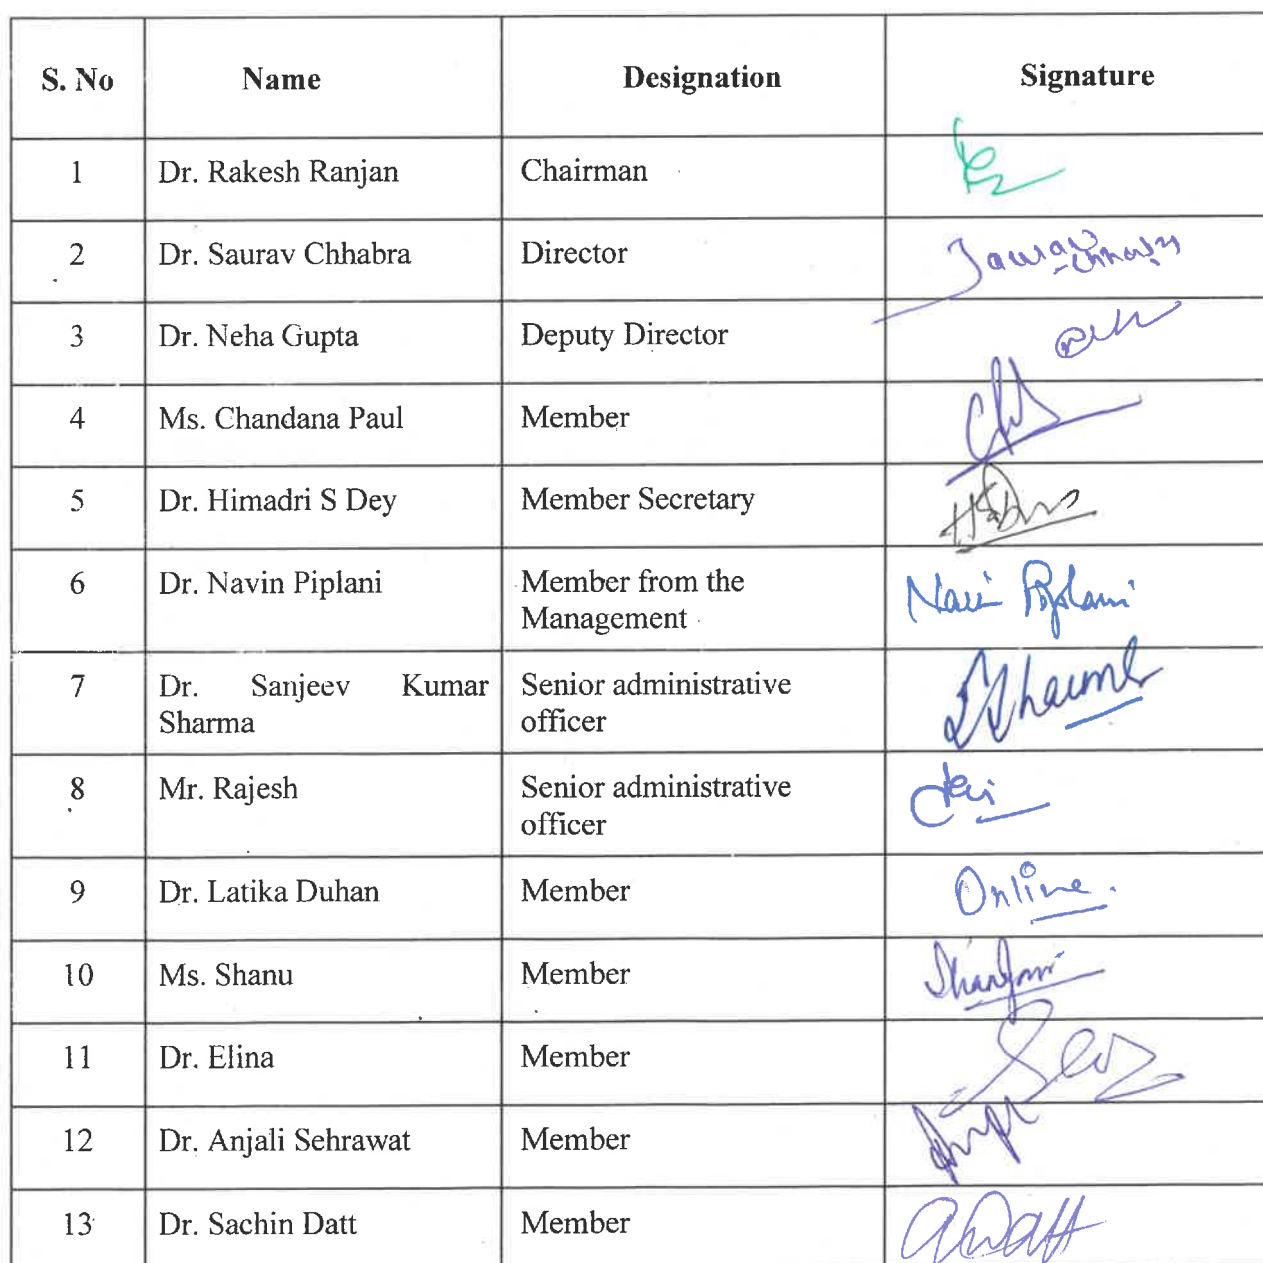 S. No Name Designation Signature
1 Dr. Rakesh Ranjan Chairman
2 Dr. Saurav Chhabra Director Saurav Chhabra
3 Dr. Neha Gupta Deputy Director
4 Ms. Chandana Paul Member
5 Dr. Himadri S Dey Member Secretary
6 Dr. Navin Piplani Member from the
Management Navin Piplani
7 Dr. Sanjeev Kumar
Sharma Senior administrative
officer
8 Mr. Rajesh Senior administrative
officer
9 Dr. Latika Duhan Member Online.
10 Ms. Shanu Member
11 Dr. Elina Member
12 Dr. Anjali Sehrawat Member
13 Dr. Sachin Datt Member